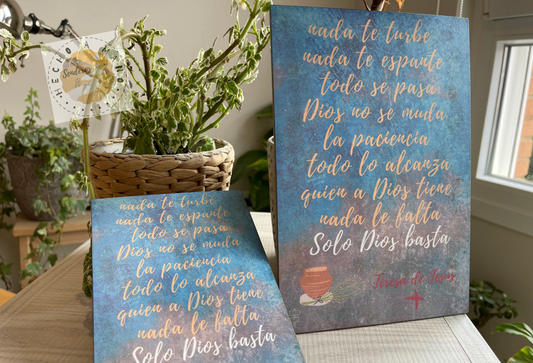 HECHO A
Sendero
nada te turbe
nada te espante
todo se pasa
Dios no se muda
la paciencia
todo lo alcanza
quien a Dios tiene
nada le falta
Solo Dios basta
Teresa de Jesús
nada te turbe
nada te espante
todo se pasa
Dios no se muda
la paciencia
todo lo alcanza
quien a Dios tiene
nada le falta
Solo Dios basta